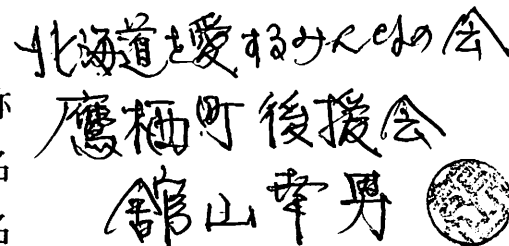 北海道を愛するみんなの会
鷹栖町後援会
舘山幸男